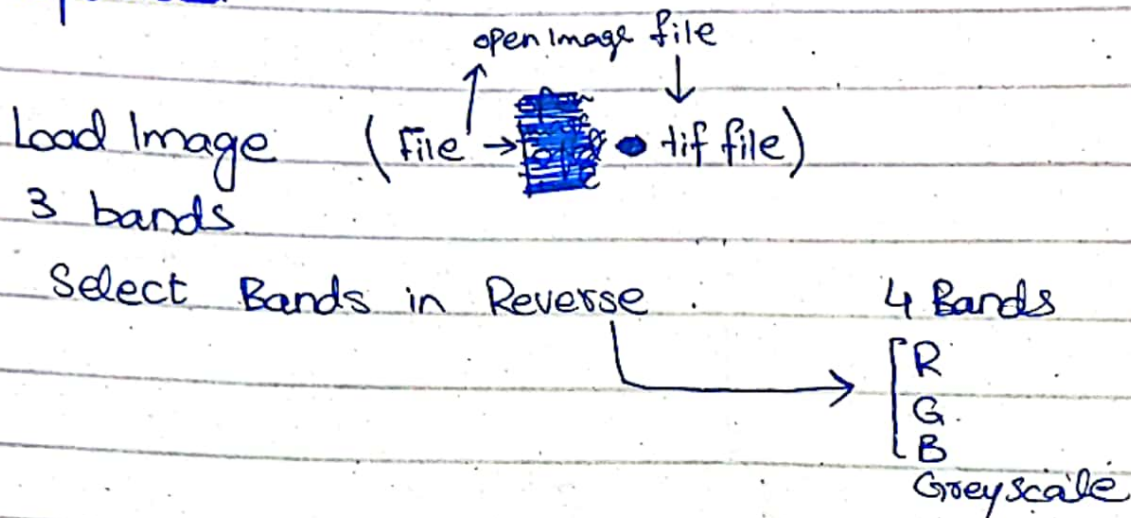 open Image file
Load Image (File → • tif file)
3 bands
Select Bands in Reverse. 4 Bands
R
G
B
Greyscale